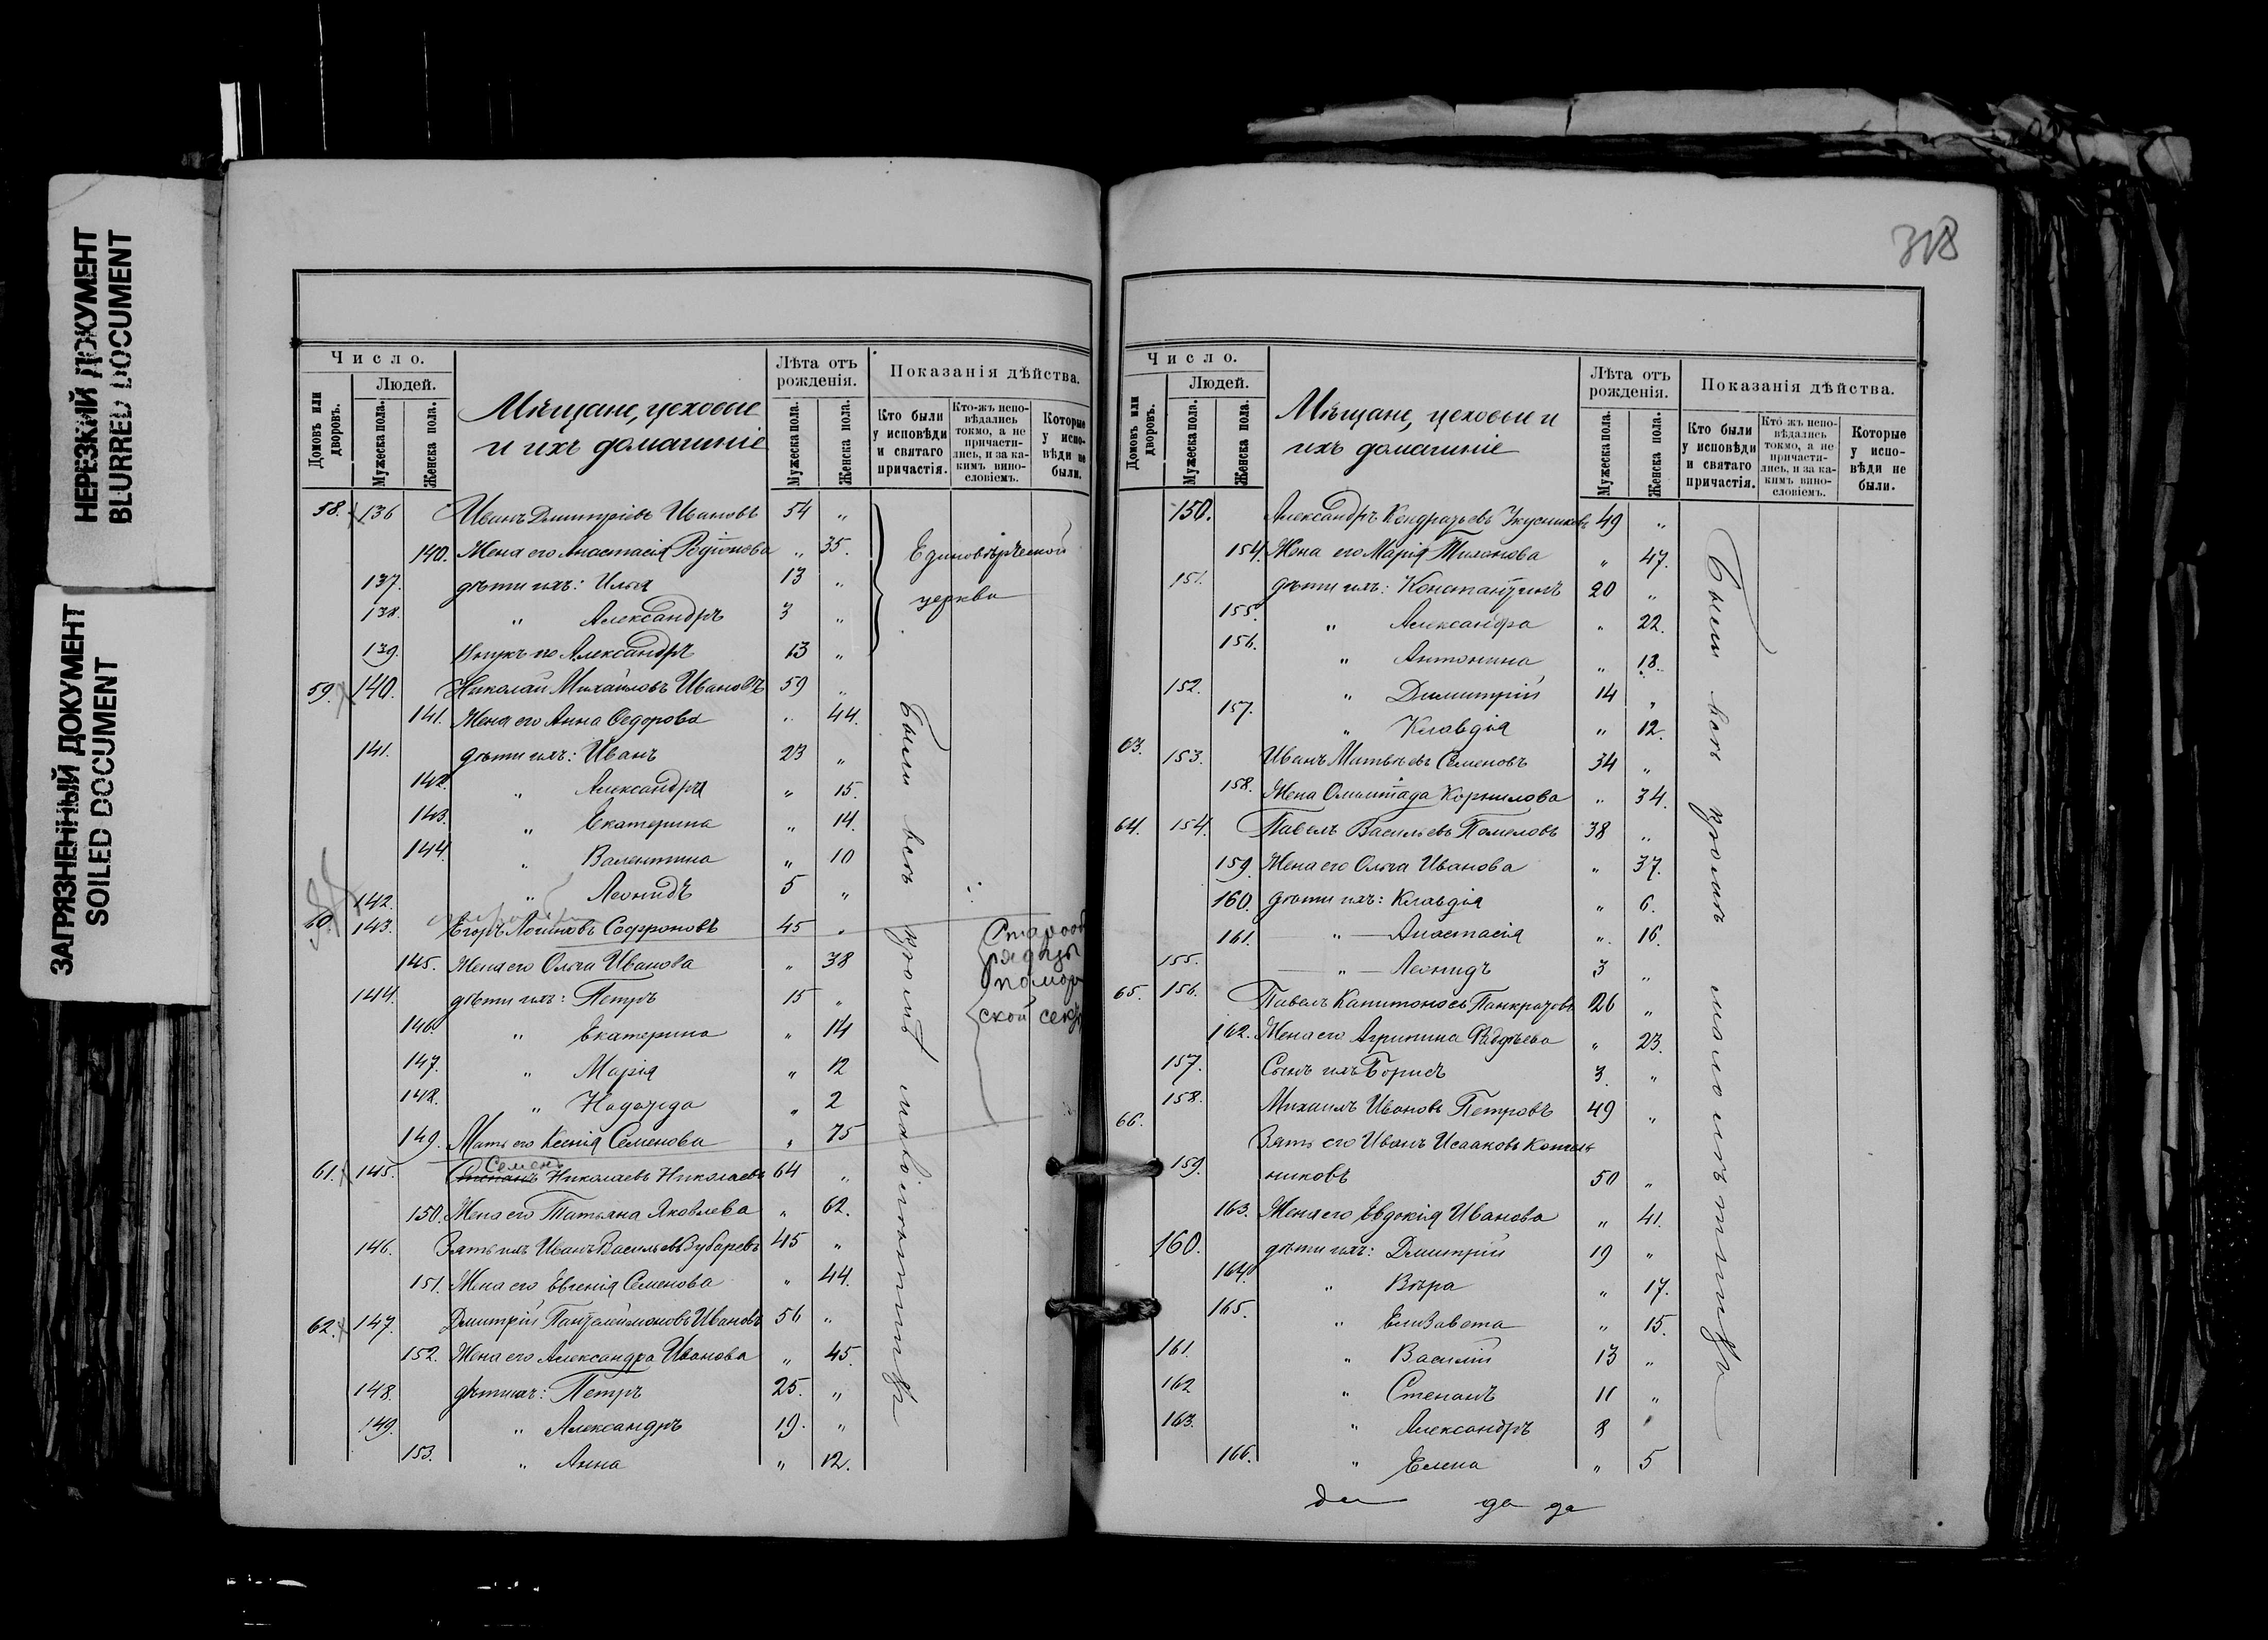 НЕРЕЗКИЙ ДОКУМЕНТ
BLURRED DOCUMENT
ЗАГРЯЗНЕННЫЙ ДОКУМЕНТ
SOILED DOCUMENT
Число.
Людей.
Домовъ или дворовъ.
Мужеска пола.
Женска пола.
Мѣщане, цеховые
и ихъ домашніе
Лѣта отъ рожденія.
Мужеска пола.
Женска пола.
Показанія дѣйства.
Кто были у исповѣди и святаго причастія.
Кто-жъ исповѣдались токмо, а не причастились, и за какимъ винословіемъ.
Которые у исповѣди не были.
58. 136 Иванъ Дмитріевъ Ивановъ 54 „
140. Жена его Анастасія Родіонова „ 35.
137. дѣти ихъ: Илья 13 „
138. „ Александръ 3 „
139. Внукъ его Александръ 13 „
Единовѣрческой
церкви
59. 140. Николай Михайловъ Ивановъ 59 „
141. Жена его Анна Ѳедорова „ 44.
141. дѣти ихъ: Иванъ 23 „
142. „ Александра „ 15.
143. „ Екатерина „ 14.
144. „ Валентина „ 10
142. „ Леонидъ 5 „
60. 143. Егоръ Логиновъ Софроновъ 45 „
145. Жена его Ольга Иванова „ 38
144. дѣти ихъ: Петръ 15 „
146. „ Екатерина „ 14
147. „ Марія „ 12
148. „ Надежда „ 2
149. Мать его Ксенія Семенова „ 75
Старооб
рядцы
помор
ской секты
Семенъ
61. 145. Степанъ Николаевъ Николаевъ 64 „
150. Жена его Татьяна Яковлева „ 62.
146. Зять ихъ Иванъ Васильевъ Зубаревъ 45 „
151. Жена его Евгенія Семенова „ 44.
62. 147. Дмитрій Панталеимоновъ Ивановъ 56 „
152. Жена его Александра Иванова „ 45.
148. дѣти ихъ: Петръ 25. „
149. „ Александръ 19. „
153. „ Анна „ 12.
Были всѣ кромѣ малолѣтнихъ
318
Число.
Людей.
Домовъ или дворовъ.
Мужеска пола.
Женска пола.
Мѣщане, цеховые и
ихъ домашніе
Лѣта отъ рожденія.
Мужеска пола.
Женска пола.
Показанія дѣйства.
Кто были у исповѣди и святаго причастія.
Кто-жъ исповѣдались токмо, а не причастились, и за какимъ винословіемъ.
Которые у исповѣди не были.
150. Александръ Кондратьевъ 49 „
154. Жена его Марія „ 47.
151. дѣти ихъ: Константинъ 20 „
155. „ Александра „ 22.
156. „ Антонина „ 18.
152. „ Димитрій 14 „
157. „ Клавдія „ 12.
63. 153. Иванъ Матвѣевъ Семеновъ 34 „
158. Жена Олимпіада Корнилова „ 34.
64. 154. Павелъ Васильевъ Помеловъ 38 „
159. Жена его Ольга Иванова „ 37.
160. дѣти ихъ: Клавдія „ 6.
161. „ Анастасія „ 16.
155. „ Леонидъ 3 „
65. 156. Павелъ Капитоновъ Панкратовъ 26 „
162. Жена его Агрипина Фаддѣева „ 23.
157. Сынъ ихъ Борисъ 3. „
66. 158. Михаилъ Ивановъ Петровъ 49 „
159. Зять его Иванъ Исааковъ Котель
никовъ 50 „
163. Жена его Евдокія Иванова „ 41.
160. дѣти ихъ: Дмитрій 19 „
164. „ Вѣра „ 17.
165. „ Елизавета „ 15.
161. „ Василій 13 „
162 „ Степанъ 11 „
163. „ Александръ 8 „
166. „ Елена „ 5
Были всѣ кромѣ малолѣтнихъ
да да да